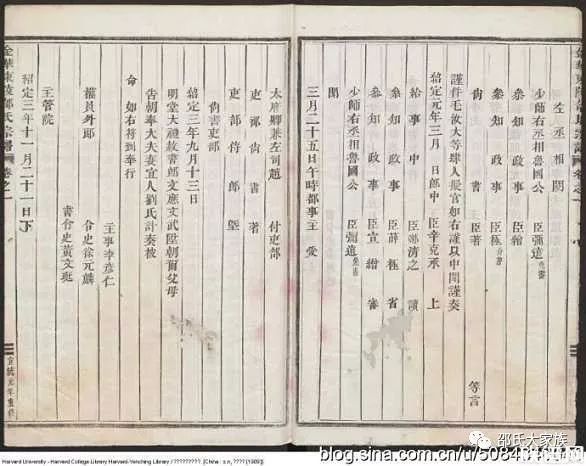 左丞相閣
少師右丞相魯國公　臣彌遠免書
參知政事　臣繪
參知政事　臣極
尚書　主　臣著　等言
謹件毛欽大等肆人擬官如右謹以申聞謹奏
紹定元年三月　日郎中　臣辛克承　上
給事中　臣鄭清之　讀
參知政事　臣薛極　省
參知政事　臣宣繒　審
少師右丞相魯國公　臣彌遠免書
聞
三月二十五日午時都事王　受
太府卿兼左司趙　付吏部
吏部尚書　著
吏部侍郎
尚書吏部
紹定三年九月十三日
明堂大禮赦書節文應文武陞朝官父母
告朝奉大夫妻宜人劉氏計奏被
命　如右符到奉行
主事李彥仁
權員外郎　令史徐元麟
書令史黃文斑
主管院
紹定三年十一月二十一日下
金華東陵邵氏宗譜　卷之一
宣統元年重修
Harvard University - Harvard College Library Harvard-Yenching Library / ????????? [China : s.n, ???? [1909]]
邵氏大家族
blog.sina.com.cn/u/50843